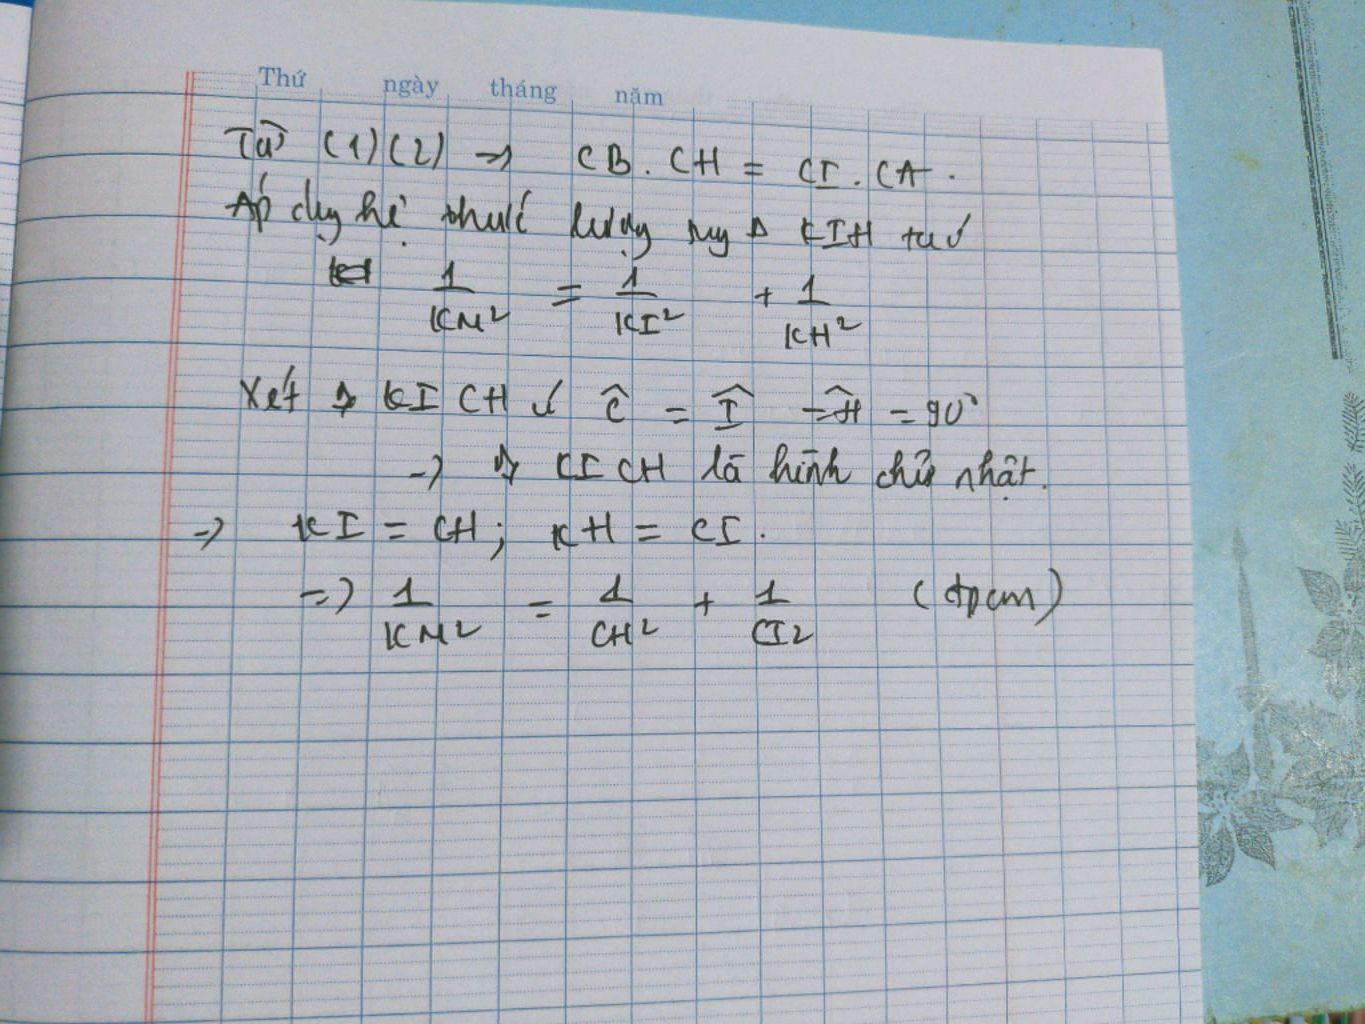 Thứ ngày tháng năm
Từ (1)(2) => CB.CH = CI.CA.
Áp dụng hệ thức lượng trong Δ KIH ta có
1/KM² = 1/KI² + 1/KH²
Xét KICH có Ĉ = Î = Ĥ = 90°
=> KICH là hình chữ nhật.
=> KI = CH; KH = CI.
=> 1/KM² = 1/CH² + 1/CI² (đpcm)